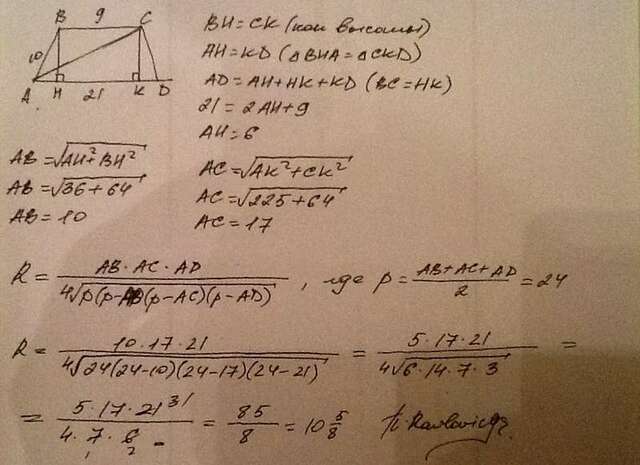 B 9 C
10
A H 21 K D
BH = CK (как высоты)
AH = KD (△BHA = △CKD)
AD = AH + HK + KD (BC = HK)
21 = 2AH + 9
AH = 6
AB = √(AH² + BH²)
AB = √(36 + 64)
AB = 10
AC = √(AK² + CK²)
AC = √(225 + 64)
AC = 17
R = AB · AC · AD / 4√(p(p-AB)(p-AC)(p-AD)), где p = (AB + AC + AD)/2 = 24
R = 10 · 17 · 21 / 4√(24(24-10)(24-17)(24-21)) = 5 · 17 · 21 / 4√(6 · 14 · 7 · 3) =
= 5 · 17 · 21 3 1 / 4 · 7 · 6 1 2 = 85/8 = 10 5/8